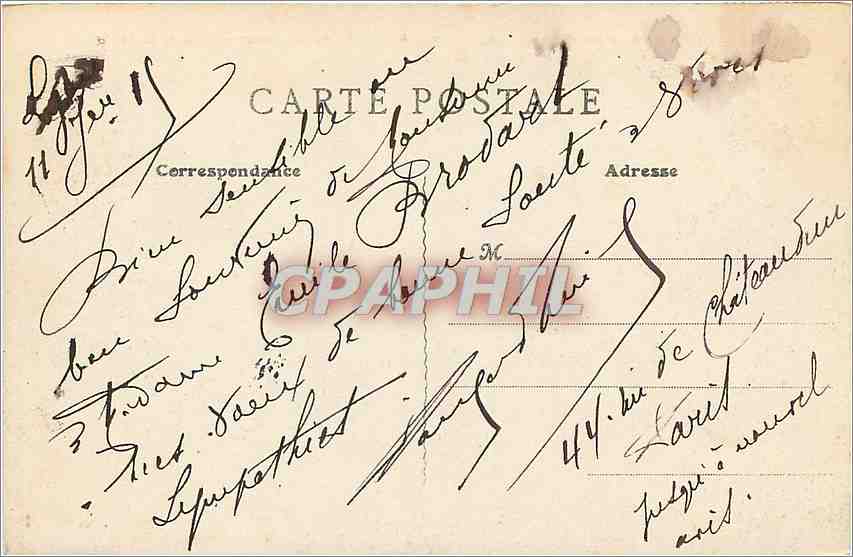 11 Jer 15
CARTE POSTALE
Correspondance
Adresse
Bien sensible au
bon souvenir de Monsieur
Madame Emile Brodart
mes vœux de bonne santé, &
Sympathies
M
44 rue de Châteaudun
Paris
jusqu'à nouvel
avis.
CPAPHIL